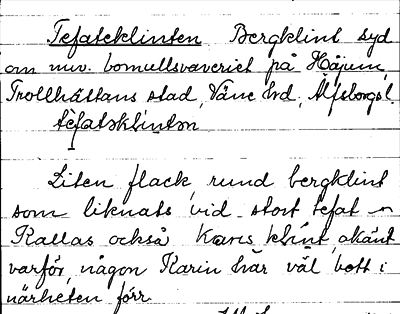 Tefatsklinten Bergklint syd
om nuv. bomullsväveriet på Håjum,
Trollhättans stad, Väne hd, Älfsborgs l.
tefatsklintɘn
Liten flack, rund bergklint
som liknats vid stort tefat
Kallas också Karis klint, okänt
varför, någon Karin har väl bott i
närheten förr.